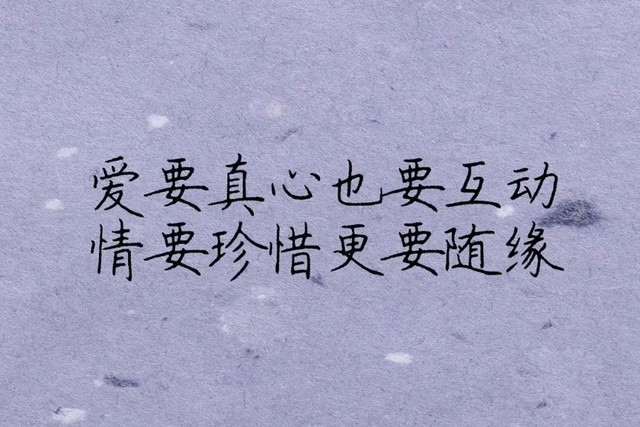 爱要真心也要互动
情要珍惜更要随缘